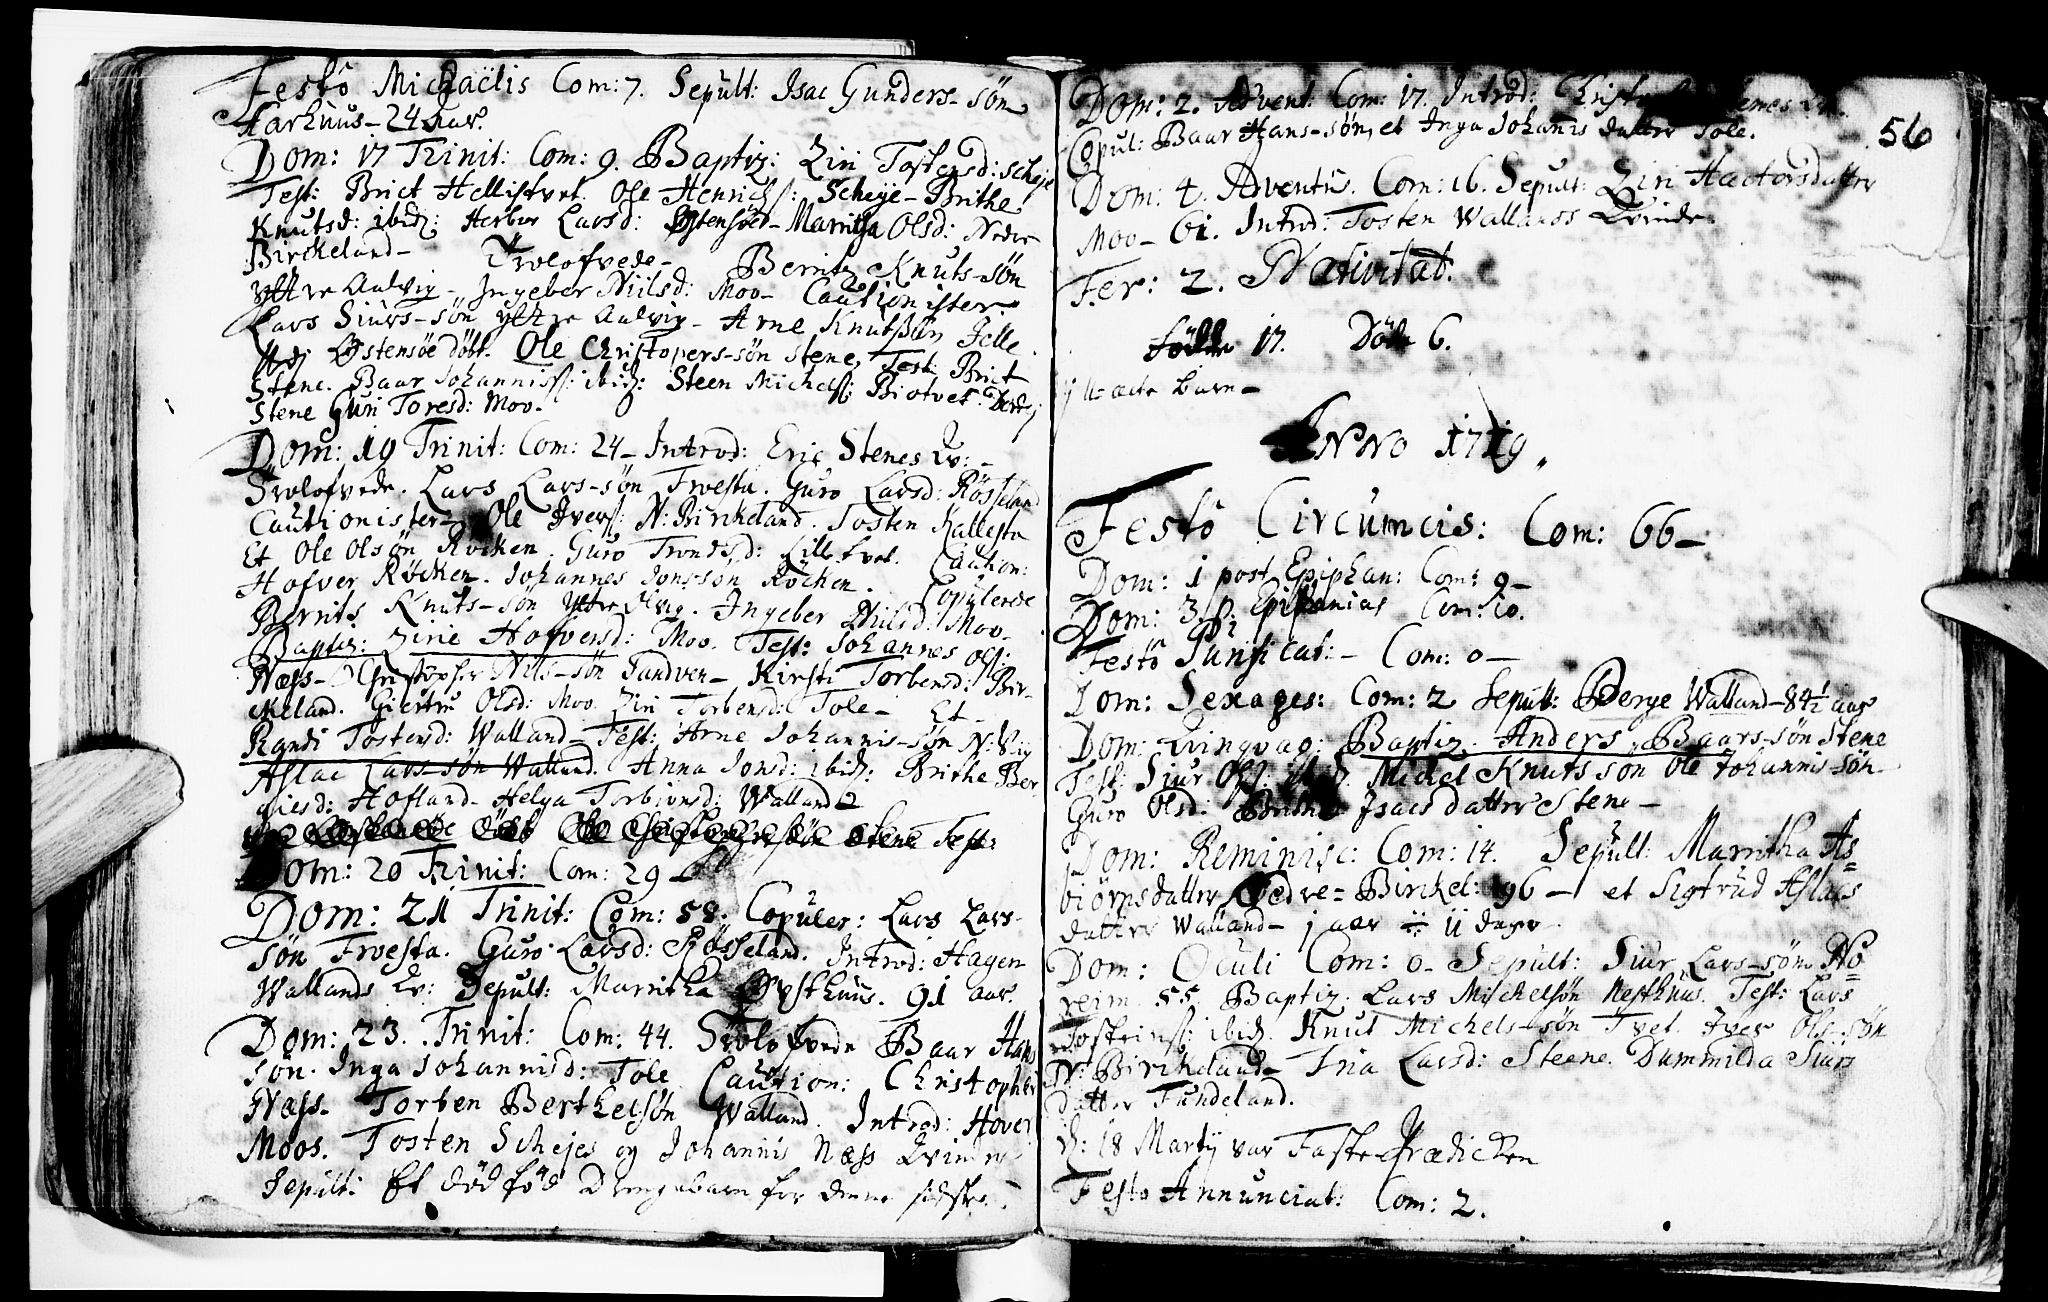 Festô Michaëlis Com: 7. Sepult: Isac Gunders-søn
Aarhuus - 24 Aar.
Dom: 17 Trinit: Com: 9. Baptiz: Ziri Tostensd: Scheje
Test: Brict Hellistvet. Ole Henrichs: Scheije - Brithe
Knutsd: ibid: Herbor Larsd: Østensøed - Marritha Olsd: Nedre
Birckeland - Trolofvede - Berrit Knuts-søn
yttre Aalvig - Ingebor Niilsd: Moo - Cautionister
Lars Siurs-søn yttre Aalvig - Arne Knutssøn Jelle
Østensøe døbt. Ole Christopers-søn Stene, Test: Brict
Stene. Baar Johanniss: ibid: Steen Michels: Biotvet
Stene Guri Toresd: Moo.
Dom: 19 Trinit: Com: 24 - Introd: Eric Stenes Qv: -
Trolofvede. Lars Lars-søn Troesta. Guro Larsd: Røsseland
Cautionister - Ole Ivers: N: Birckeland. Tosten Kallesta
Et Ole Olsøn Røcken. Guro Trondsd: Lillefvet. Caution:
Hofver Røcken. Johannes Jons-søn Røcken. Copulerede
Berrits Knuts-søn yttre Alvig. Ingeber Niilsd: Moo -
Baptiz: Zirie Hofversd: Moo. Test: Johannes Ols:
Næss - Christopher Nils-søn Sandven - Kirsti Torbensd: Bir-
ckeland. Giertru Olsd: Moo. Ziri Torbensd: Tole - Et -
Randi Tostensd: Walland - Test: Arne Johannis-søn N: Vig
Aslac Lars-søn Walland. Anna Jonsd: ibid: Brithe Ber
giesd: Hofland - Helga Torbiørnsd: Walland
Stene Test:
Dom: 20 Trinit: Com: 29 -
Dom: 21 Trinit: Com: 58. Copuler: Lars Lars-
søn Troesta. Guro Larsd: Røsseland. Introd: Hagen
Wallands Qv: Sepult: Marritha Østhuus. 91 aar.
Dom: 23. Trinit: Com: 44. Trolofvede Baar Hans
søn. Inga Johannisd: Tole Caution: Christopher
Næss - Torben Berthelsøn Walland. Introd: Hover
Moos. Tosten Schejes og Johannis Næss Qvinder
Sepult: Et død fød Drengebarn for denne sidste.
Dom: 2. Advent: Com: 17. Introd:
Copul: Baar Hans-søn, et Inga Johannis datter Tole.
56
Dom: 4. Adventû. Com: 16. Sepult: Ziri Hactorsdatter
Moo - 61. Introd: Tosten Wallands Qvinde
Fer: 2. Nativitat.
Fødde 17. Døde 6.
U-ægte barn -
Anno 1719.
Festô Circumcis: Com: 66 -
Dom: 1 post Epiphan: Com: 9 -
Dom: 3 p. Epiphanias Com: 10.
Festô Purificat: - Com: 0 -
Dom: Sexages: Com: 2 Sepult: Berge Walland - 84½ aar
Dom: Qvinqvag: Baptiz. Anders Baars-søn Stene
Test: Siur Ols: ibid. Michel Knuts søn Ole Johannis-søn
Guro Olsd: Brithe Isacs datter Stene -
Dom: Reminisc: Com: 14. Sepult: Marritha As=
biørns datter Nedre = Birckel: 96 - et Sigtrud Aslacs
datter Walland - 1 aar ÷ 11 dager
Dom: Oculi Com: 0 - Sepult: Siur Lars-søn No=
reim 55. Baptiz. Lars Michelsøn Nesthuus. Test: Lars
Tostens: ibid. Knut Michels-søn Tvet. Iver Ols-søn
N: Birckeland - Fria Larsd: Steene. Dammilda Siurs
datter Fundeland.
d: 18 Martij var Faste Prædicken
Festo Annunciat: Com: 2.